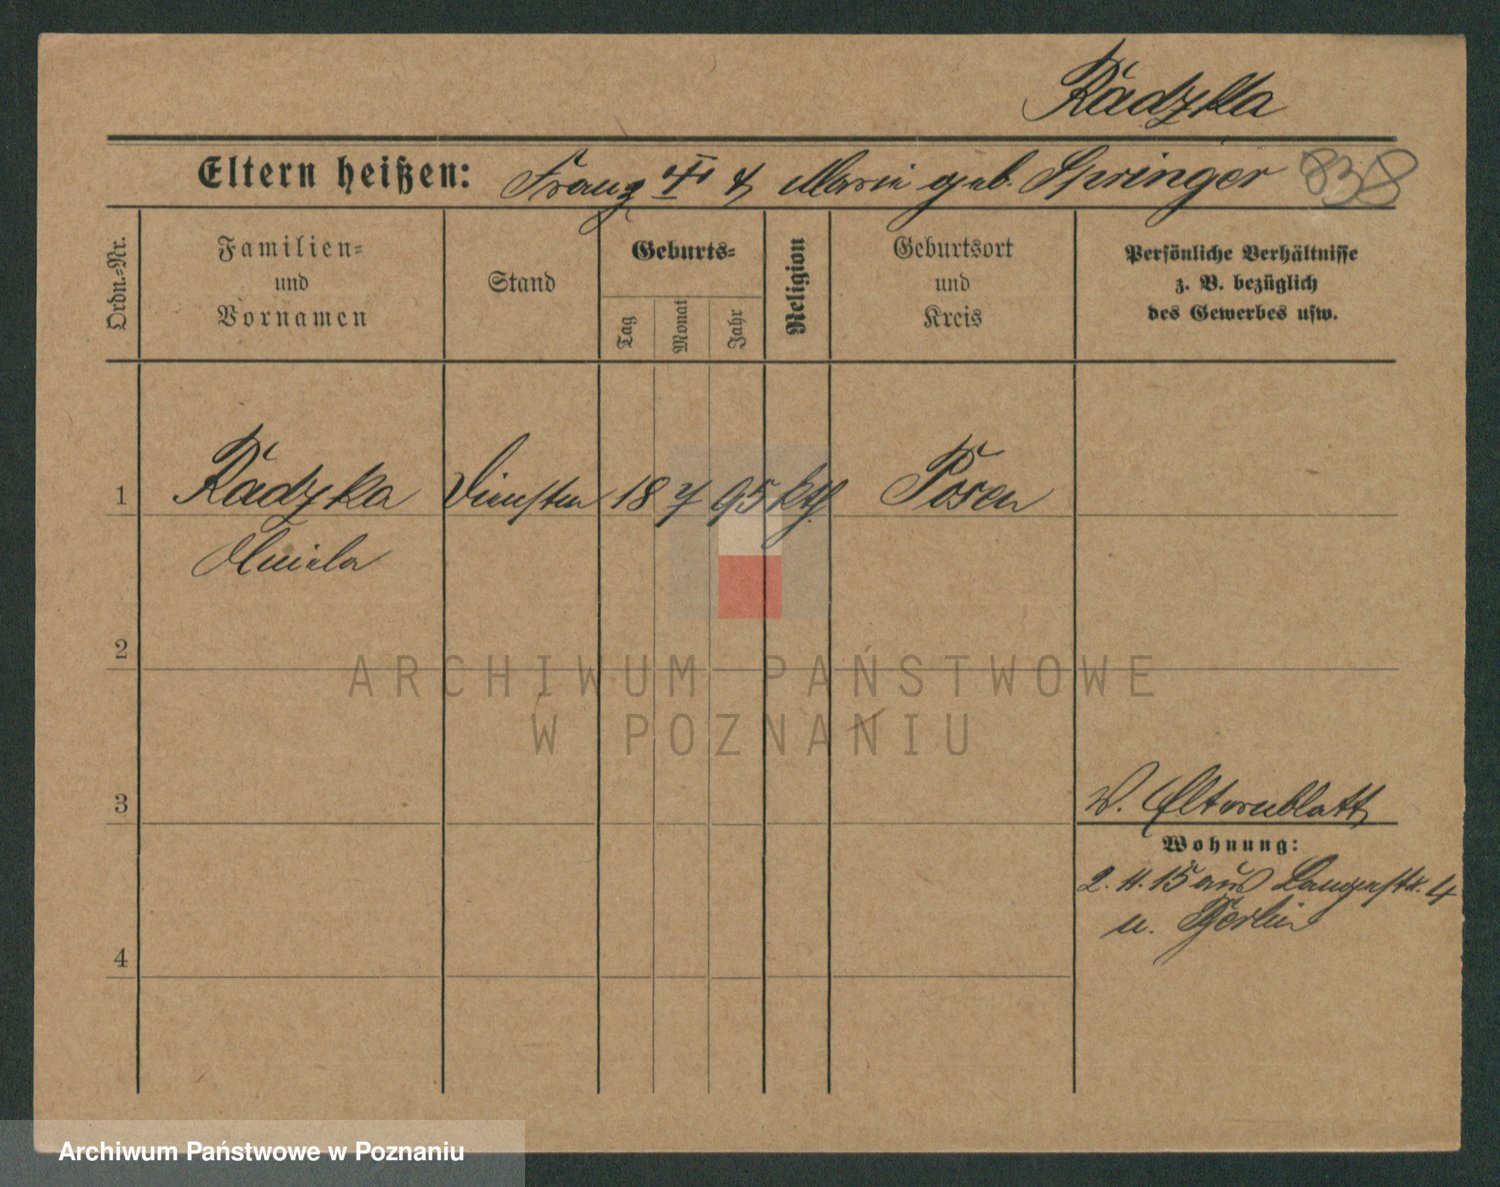 Radzka
Eltern heißen: Franz & Marie geb. Springer 838
Ordn.=Nr.
Familien=
und
Vornamen
Stand
Geburts=
Tag
Monat
Jahr
Religion
Geburtsort
und
Kreis
Persönliche Verhältnisse
z. B. bezüglich
des Gewerbes usw.
1 Radzka 18 7 95 kth. Posen
2
3
W. Elternblatt
Wohnung:
2. 11. 15 aus Langestr. 4
n. Berlin
4
ARCHIWUM PAŃSTWOWE
W POZNANIU
Archiwum Państwowe w Poznaniu